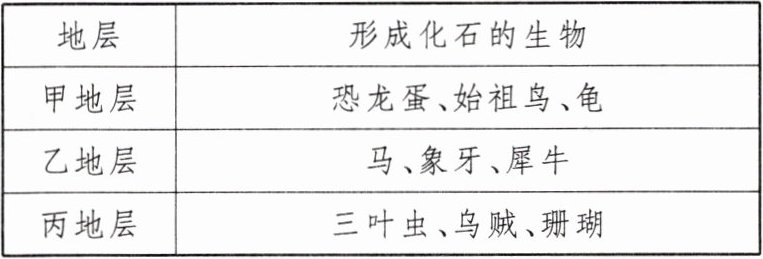 地层 形成化石的生物
甲地层 恐龙蛋、始祖鸟、龟
乙地层 马、象牙、犀牛
丙地层 三叶虫、乌贼、珊瑚